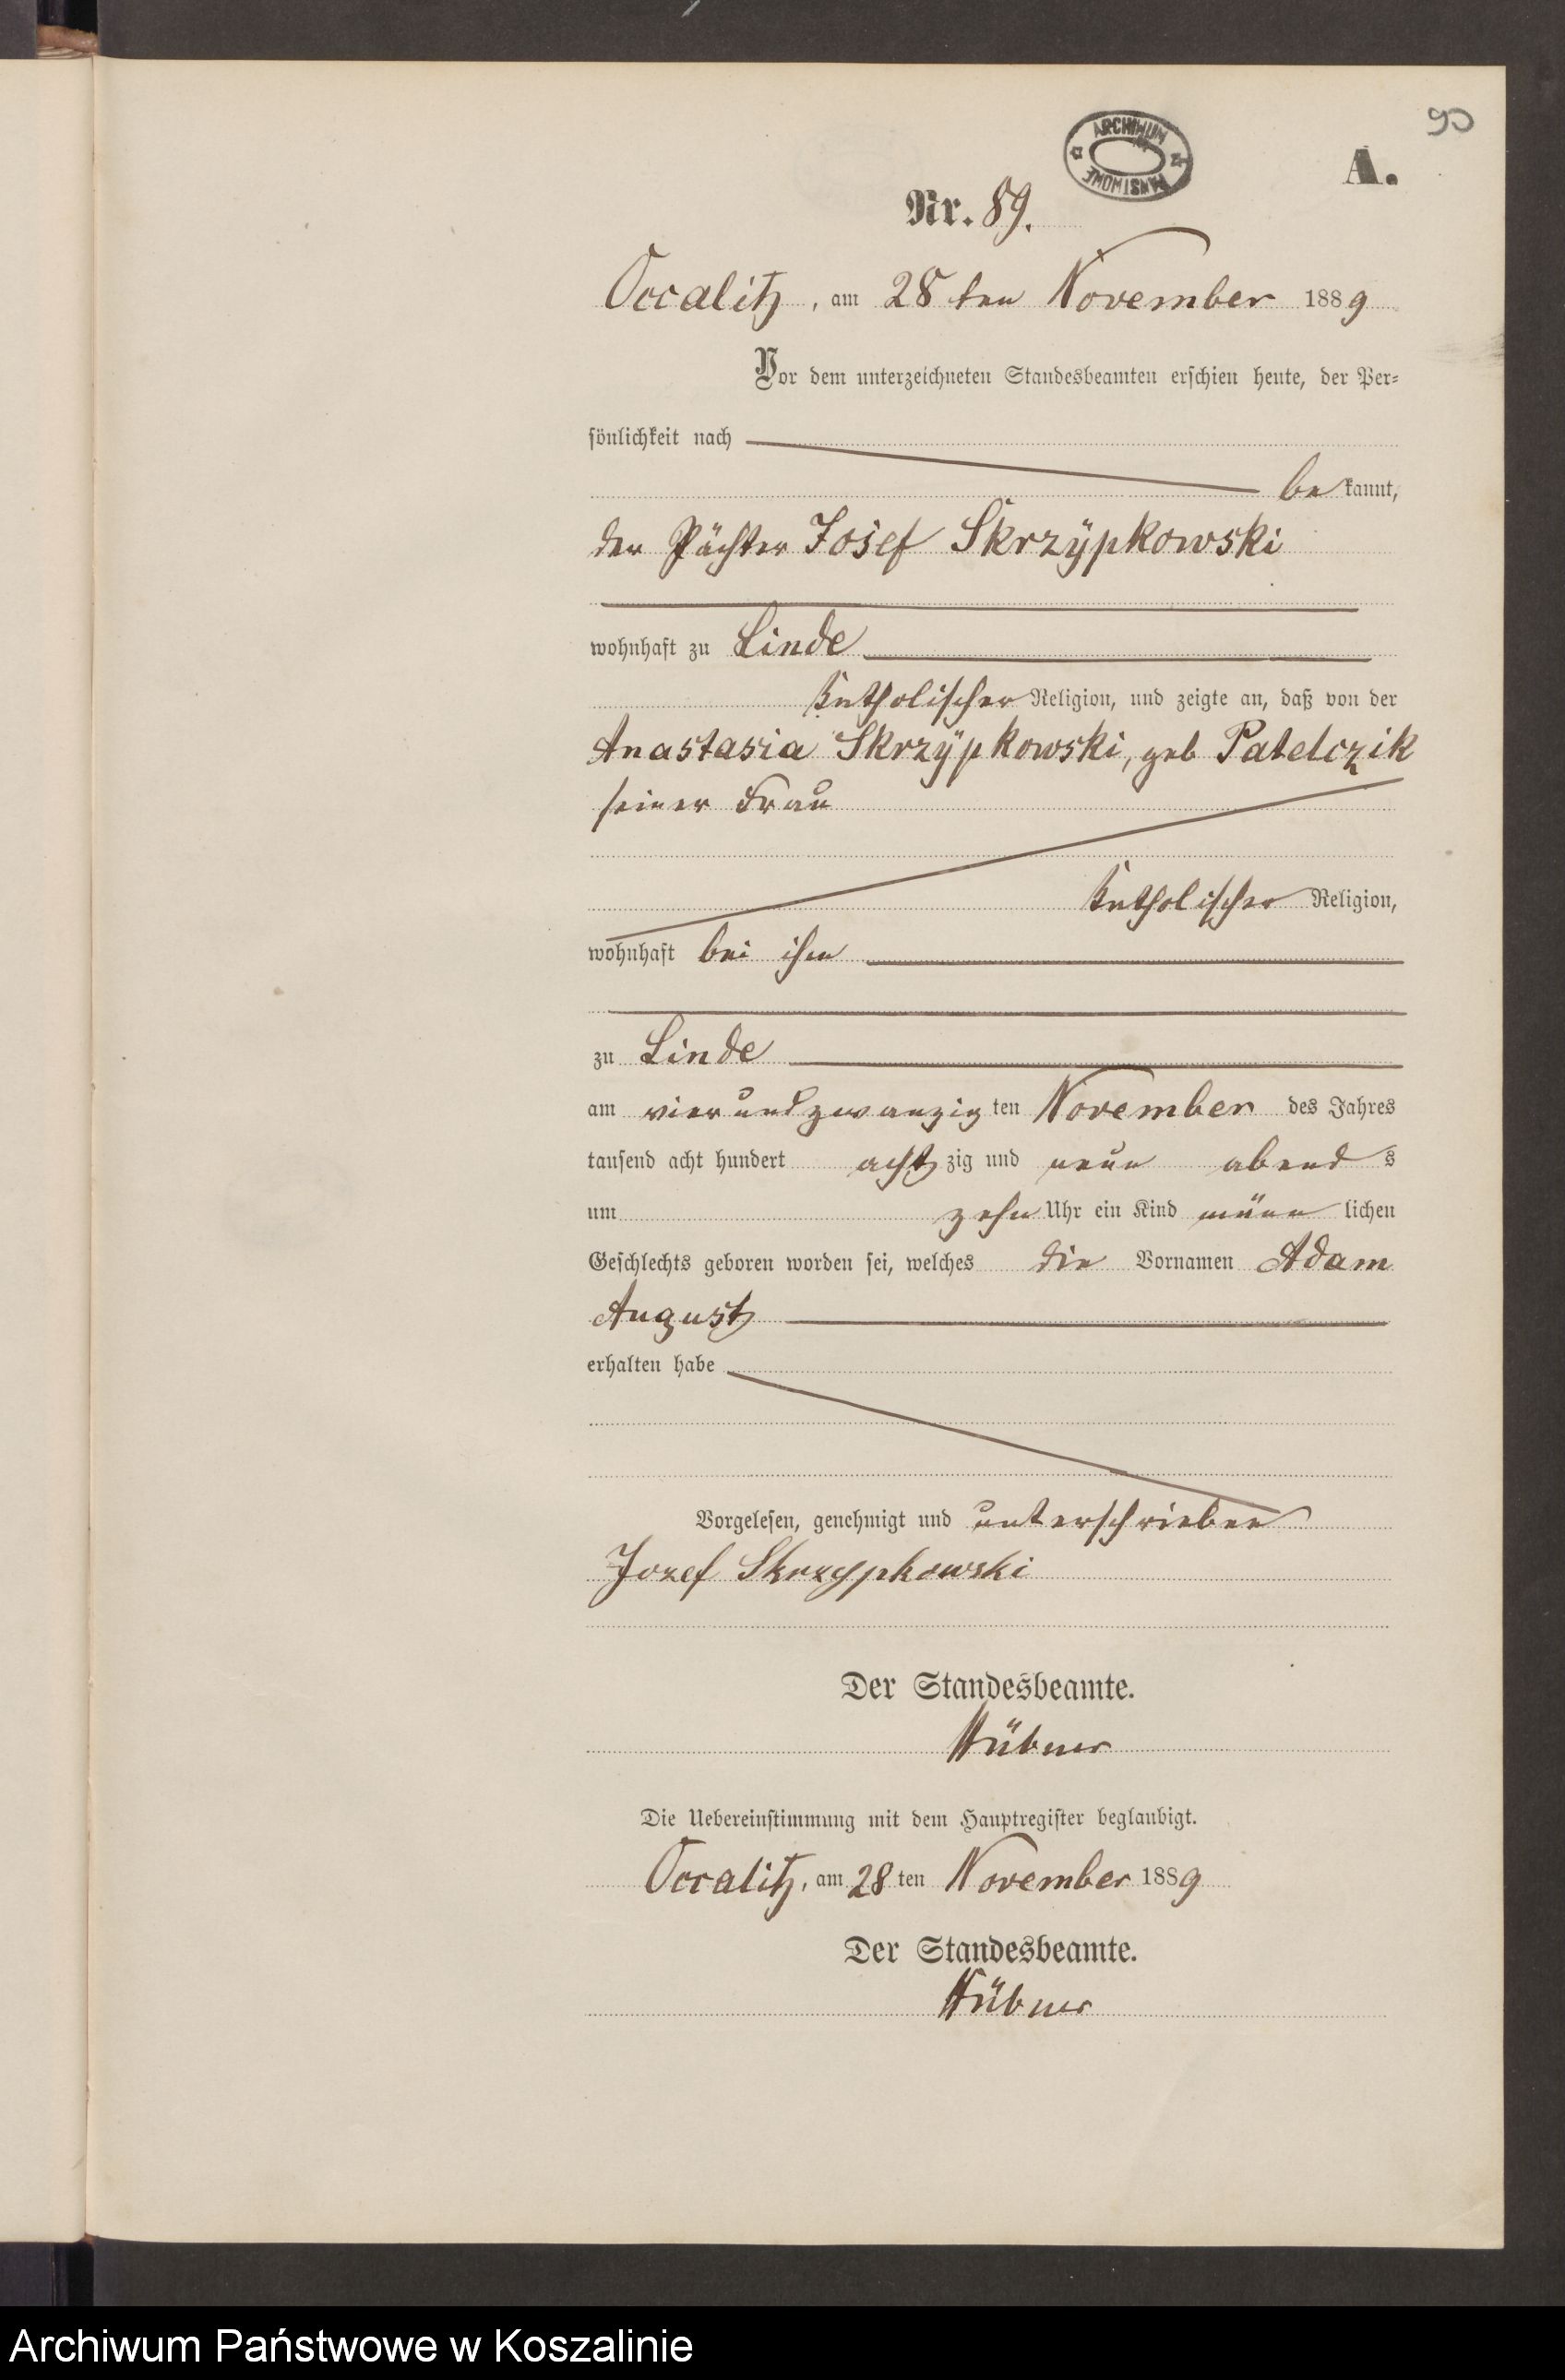 90
ARCHIWUM PAŃSTWOWE
A.
Nr. 89.
Occalitz, am 28 ten November 1889
Vor dem unterzeichneten Standesbeamten erschien heute, der Per-
sönlichkeit nach
bekannt,
der Pächter Josef Skrzÿpkowski
wohnhaft zu Linde
katholischer Religion, und zeigte an, daß von der
Anastasia Skrzÿpkowski, geb Patelczik
seiner Frau
katholischer Religion,
wohnhaft bei ihm
zu Linde
am vierundzwanzig ten November des Jahres
tausend acht hundert achtzig und neun abends
um zehn Uhr ein Kind männlichen
Geschlechts geboren worden sei, welches die Vornamen Adam
August
erhalten habe
Vorgelesen, genehmigt und unterschrieben
Jozef Skrzypkowski
Der Standesbeamte.
Hübner
Die Uebereinstimmung mit dem Hauptregister beglaubigt.
Occalitz, am 28 ten November 1889
Der Standesbeamte.
Hübner
Archiwum Państwowe w Koszalinie